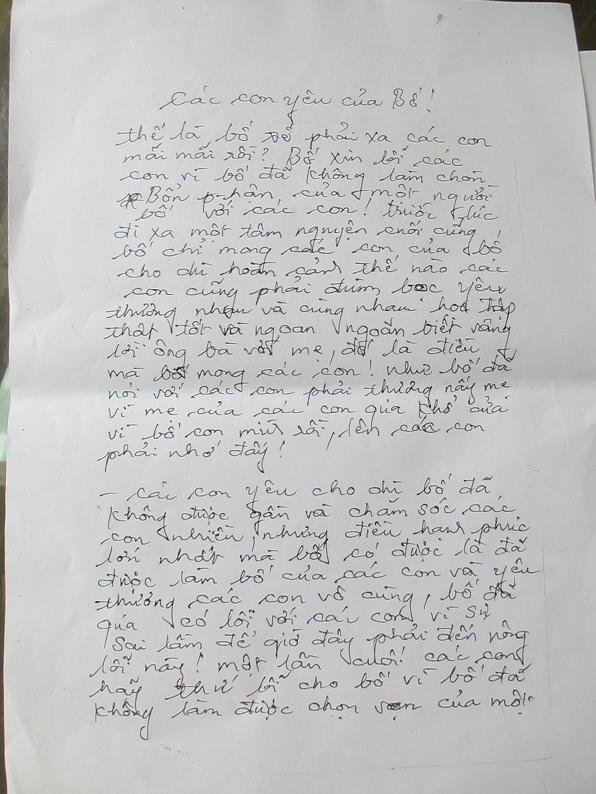 Các con yêu của Bố!
thế là bố sẽ phải xa các con
mãi mãi rồi? Bố xin lỗi các
con vì bố đã không làm chòn
Bổn phận của một người
bố với các con! trước lúc
đi xa một tâm nguyện cuối cùng,
bố chỉ mong các con của bố
cho dù hoàn cảnh thế nào các
con cũng phải đùm bọc yêu
thương nhau và cùng nhau học tập
thật tốt và ngoan ngoãn biết vâng
lời ông bà với mẹ, đó là điều
mà bố mong các con! như bố đã
nói với các con phải thương lấy mẹ
vì mẹ của các con qúa khổ
vì bố con mìn rồi, lên các con
phải nhớ đấy!
- Các con yêu cho dù bố đã
không được gần và chăm sóc các
con nhiều, nhưng điều hạnh phúc
lớn nhất mà bố có được là đã
được làm bố của các con và yêu
thương các con vô cùng, bố đã
qúa có lỗi với các con vì sự
Sai lầm để giờ đây phải đến nông
lỗi này! một lần cuối các con
hãy thứ lỗi cho bố vì bố đã
không làm được chọn vẹn của một